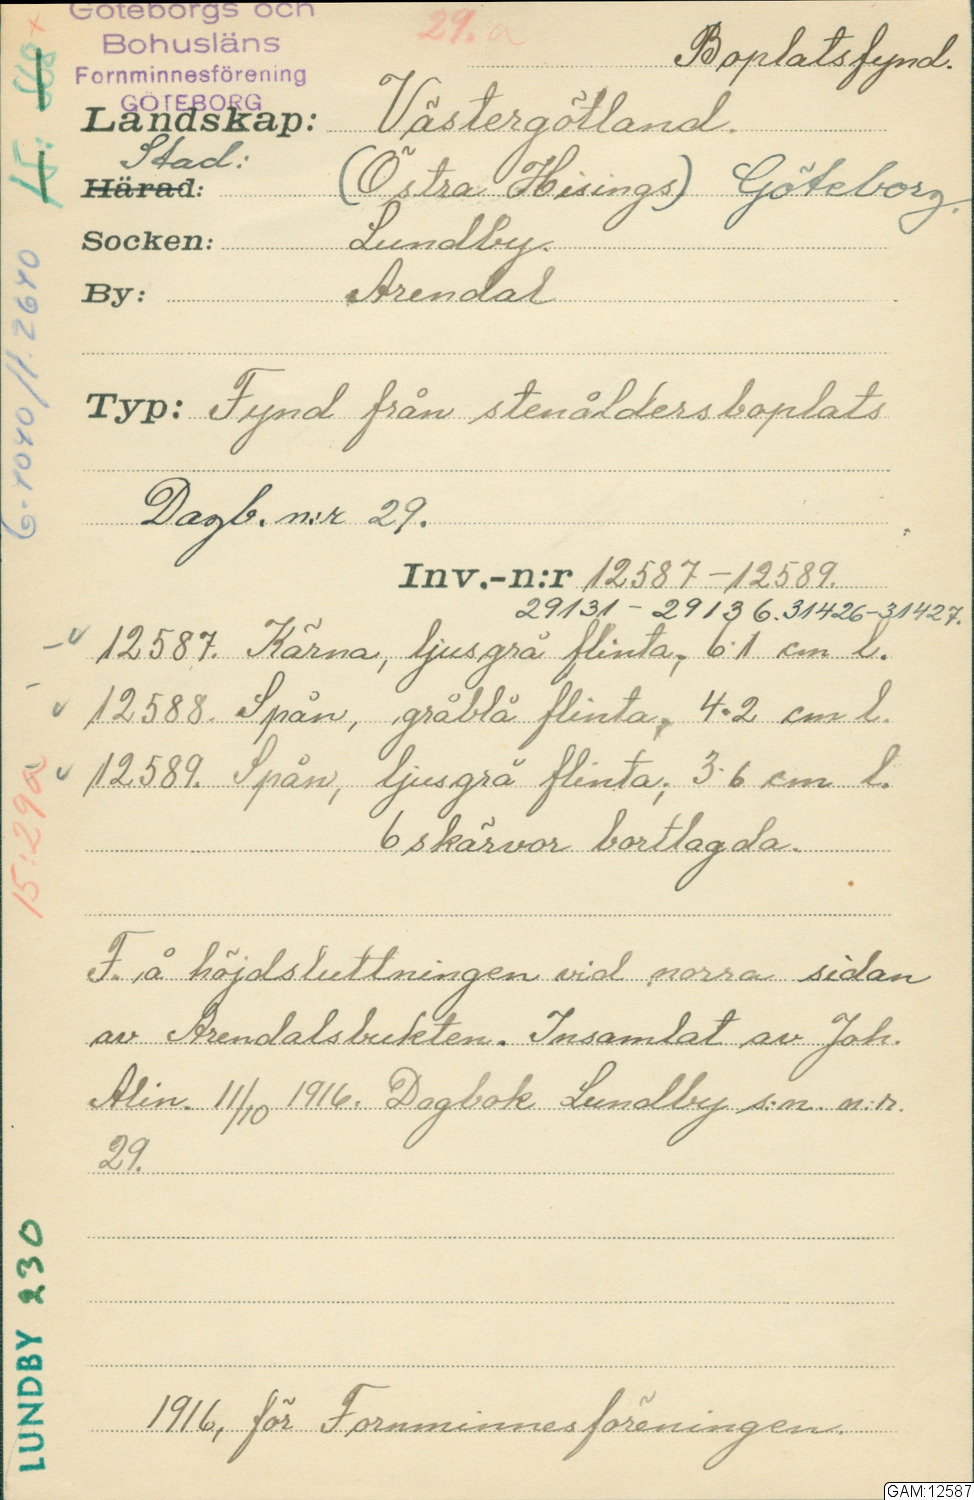 Göteborgs och
Bohusläns
Fornminnesförening
GÖTEBORG
29. a
Boplatsfynd.
Landskap: Västergötland.
Stad:
Härad: (Östra Hisings) Göteborg.
Socken: Lundby.
By: Arendal
Typ: Fynd från stenåldersboplats
Dagb. n:r 29.
Inv.-n:r 12587-12589.
29131-29136. 31426-31427.
12587. Kärna, ljusgrå flinta, 6.1 cm l.
12588. Spån, gråblå flinta, 4.2 cm l.
12589. Spån, ljusgrå flinta, 3.6 cm l.
6 skärvor bortlagda.
F. å höjdsluttningen vid norra sidan
av Arendalsbukten. Insamlat av Joh.
Alin. 11/10 1916. Dagbok Lundby s:n. n:r.
29.
1916, för Fornminnesföreningen.
15:29a
LUNDBY 230
GAM:12587